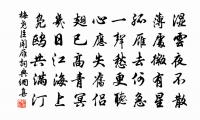 溼雲夜不散
薄處微有星
孤雁去何急
一聲愁更聽
心應失侶
已青冥
幾日江海上
鳧鷗共滿汀
梅堯臣聞雁詞典網集